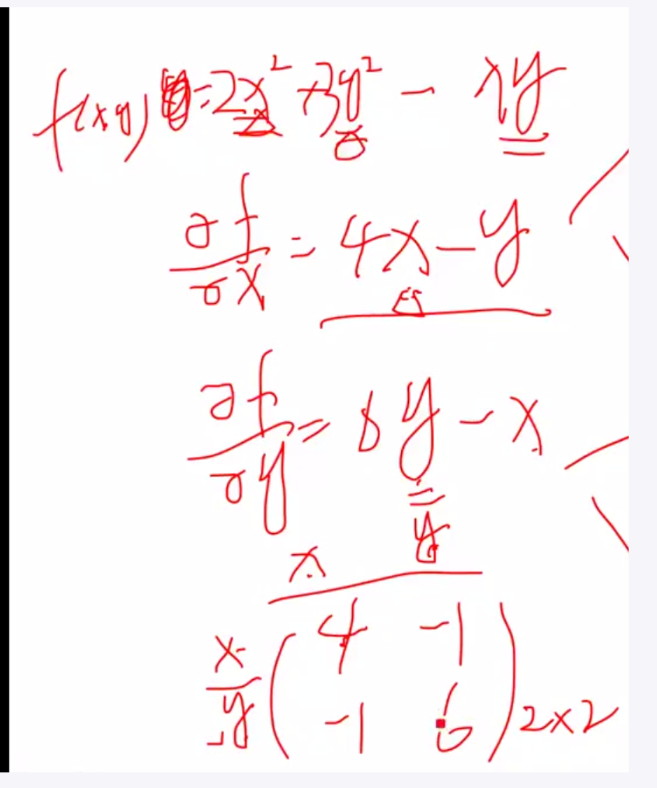 f(x,y) = 2x² + 3y² - xy
∂f/∂x = 4x - y
∂f/∂y = 6y - x
x y
x ( 4 -1
y -1 6 ) 2×2